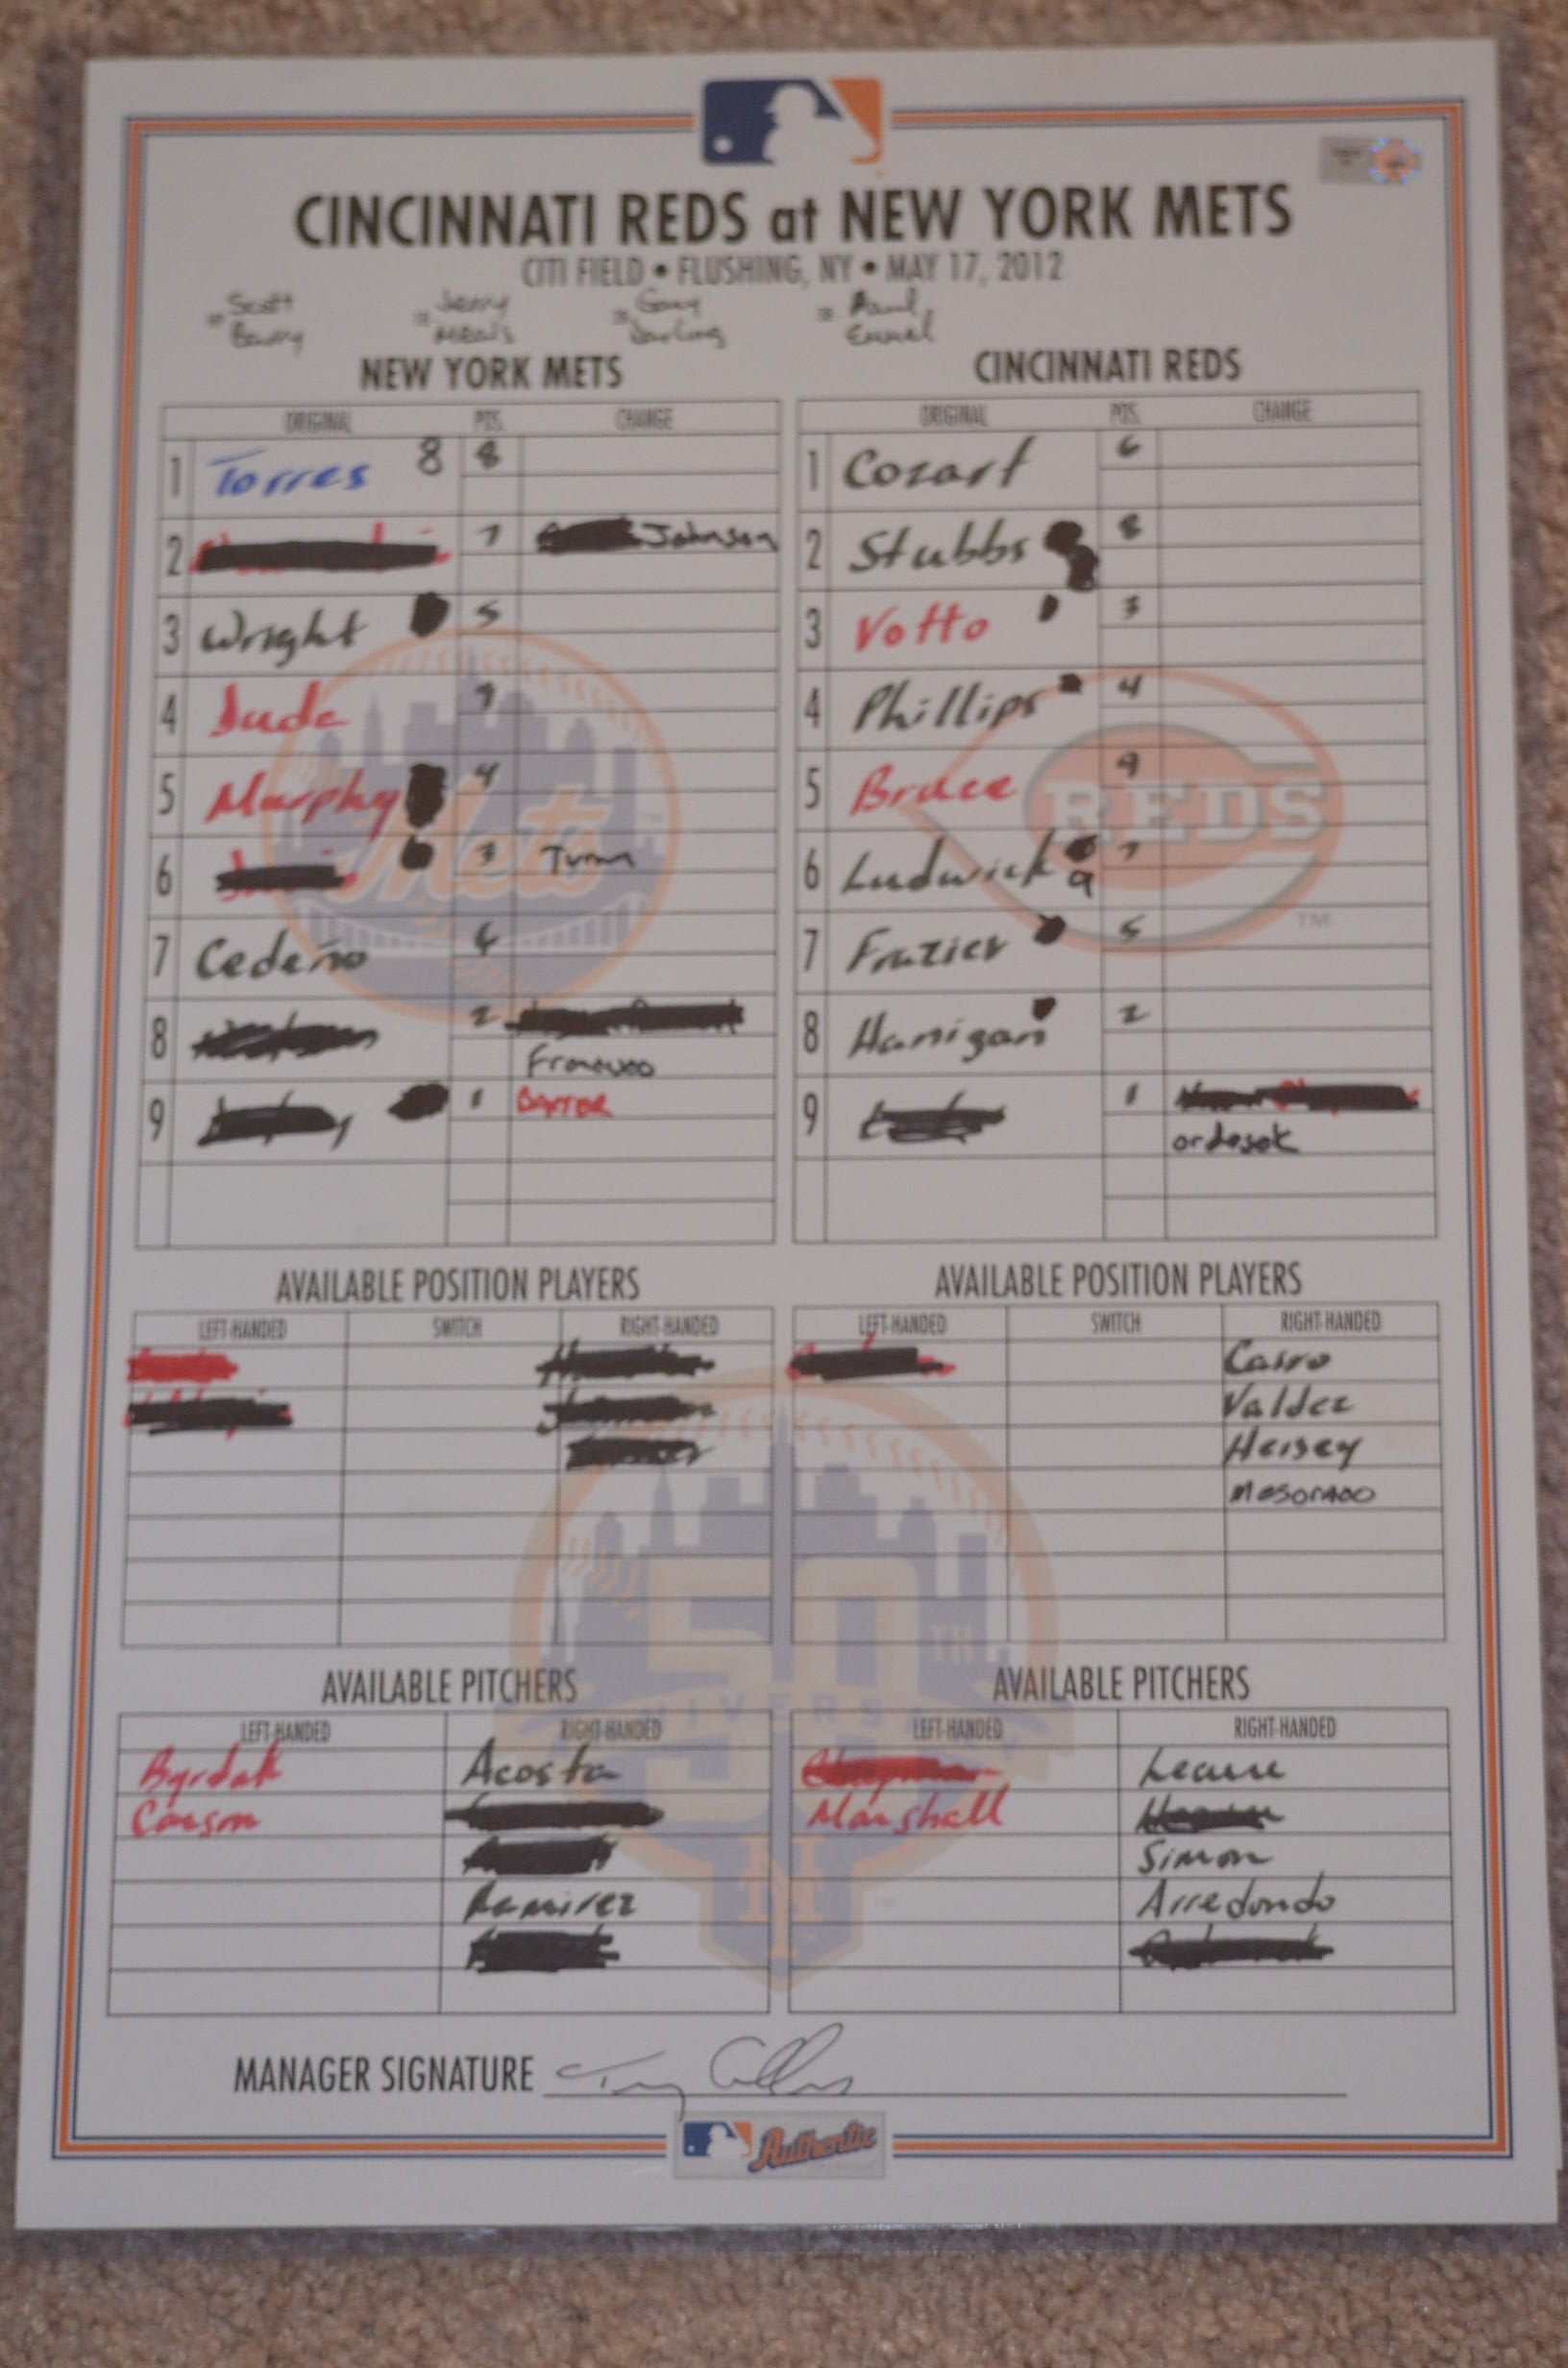 CINCINNATI REDS at NEW YORK METS
CITI FIELD • FLUSHING, NY • MAY 17, 2012
Scott Jerry Gary Paul
Barry Meals Darling Emmel
NEW YORK METS
ORIGINAL POS. CHANGE
1 Torres 8 8
2 7 Johnson
3 Wright 5
4 Duda 9
5 Murphy 4
6 3 Turner
7 Cedeño 6
8 2
9 1 BAXTER
CINCINNATI REDS
ORIGINAL POS. CHANGE
1 Cozart 6
2 Stubbs 8
3 Votto 3
4 Phillips 4
5 Bruce 9
6 Ludwick 9 7
7 Frazier 5
8 Hanigan 2
9 1
ordosek
Mets
REDS
TM
AVAILABLE POSITION PLAYERS
LEFT-HANDED SWITCH RIGHT-HANDED
AVAILABLE POSITION PLAYERS
LEFT-HANDED SWITCH RIGHT-HANDED
Cairo
Valdez
Heisey
MESORACO
50TH
AVAILABLE PITCHERS
LEFT-HANDED RIGHT-HANDED
Byrdak Acosta
Carson
Ramirez
AVAILABLE PITCHERS
LEFT-HANDED RIGHT-HANDED
Lecure
Marshall
Simon
Arredondo
NY
MANAGER SIGNATURE Terry Collins
Authentic